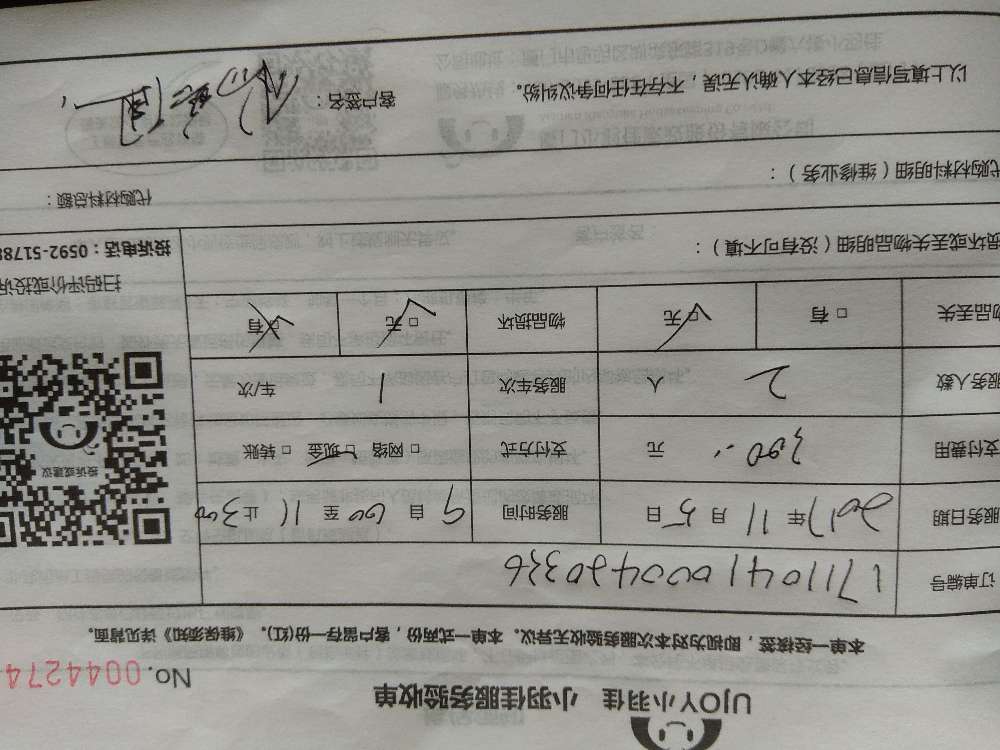 UJOY小羽佳 小羽佳服务验收单
No. 0044274
本单一经接签，即视为对本次服务验收无异议。本单一式两份，客户留存一份(红)。《维保须知》详见背面。
订单编号 1711041000420336
服务日期 2017年11月5日 服务时间 9自00至11止300
支付费用 300 元 支付方式 □网络 □现金 □转账
服务人数 2 人 服务车次 1 车/次
物品丢失 □有 □无 物品损坏 □无 □有
投诉或建议
扫码评价或投诉
投诉电话：0592-51788
损坏或丢失物品明细（没有可不填）：
代购材料明细（维修业务）： 代购材料总额：
以上填写信息已经本人确认无误，不存在任何争议纠纷。 客户签名：